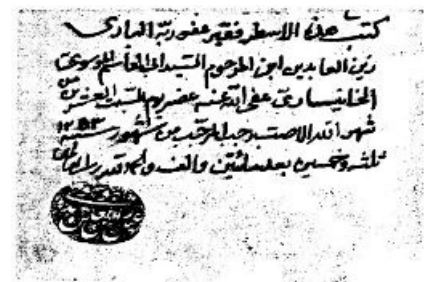 كتب هذه الاسطر فقير عفو ربه الباري
زين العابدين ابن المرحوم السيد ابو القاسم الموسوي
الخانيساري عفى الله عنه عصر يوم السبت العشرين من
شهر الله الاصب رجب المرجب من شهور سنه ١٢٥٣
ثلثه وخمسين بعد مائتين والف والحمد لله رب العالمين